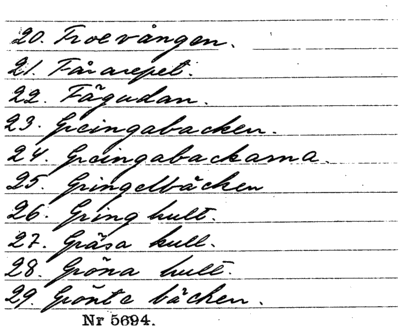 20. Troevången.
21. Fårarepet.
22. Fågudan.
23. Greingabacken.
24. Greingabackarna.
25. Gringelbäcken
26. Gring hult.
27. Gräsa kull.
28. Gröna hult.
29. Grönte bäcken.
Nr 5694.